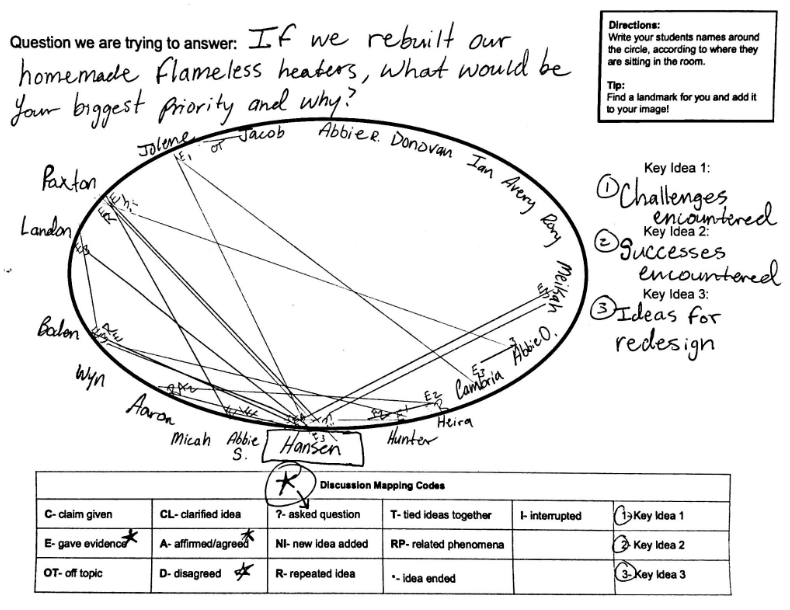 Question we are trying to answer: If we rebuilt our
homemade flameless heaters, what would be
your biggest priority and why?
Directions:
Write your students names around
the circle, according to where they
are sitting in the room.
Tip:
Find a landmark for you and add it
to your image!
Jolene
OT
Jacob
Abbie R.
Donovan
Ian
Avery
Rory
Meikah
Abbie O.
Cambria
Heira
Hunter
Hansen
Abbie
S.
Micah
Aaron
Wyn
Landon
Paxton
E1
E2
E3
E3
3
Key Idea 1:
① Challenges
encountered
Key Idea 2:
② Successes
encountered
Key Idea 3:
③ Ideas for
redesign
Discussion Mapping Codes
C- claim given
CL- clarified idea
?- asked question
T- tied ideas together
I- interrupted
1- Key Idea 1
E- gave evidence
A- affirmed/agreed
NI- new idea added
RP- related phenomena
2- Key Idea 2
OT- off topic
D- disagreed
R- repeated idea
*- idea ended
3- Key Idea 3